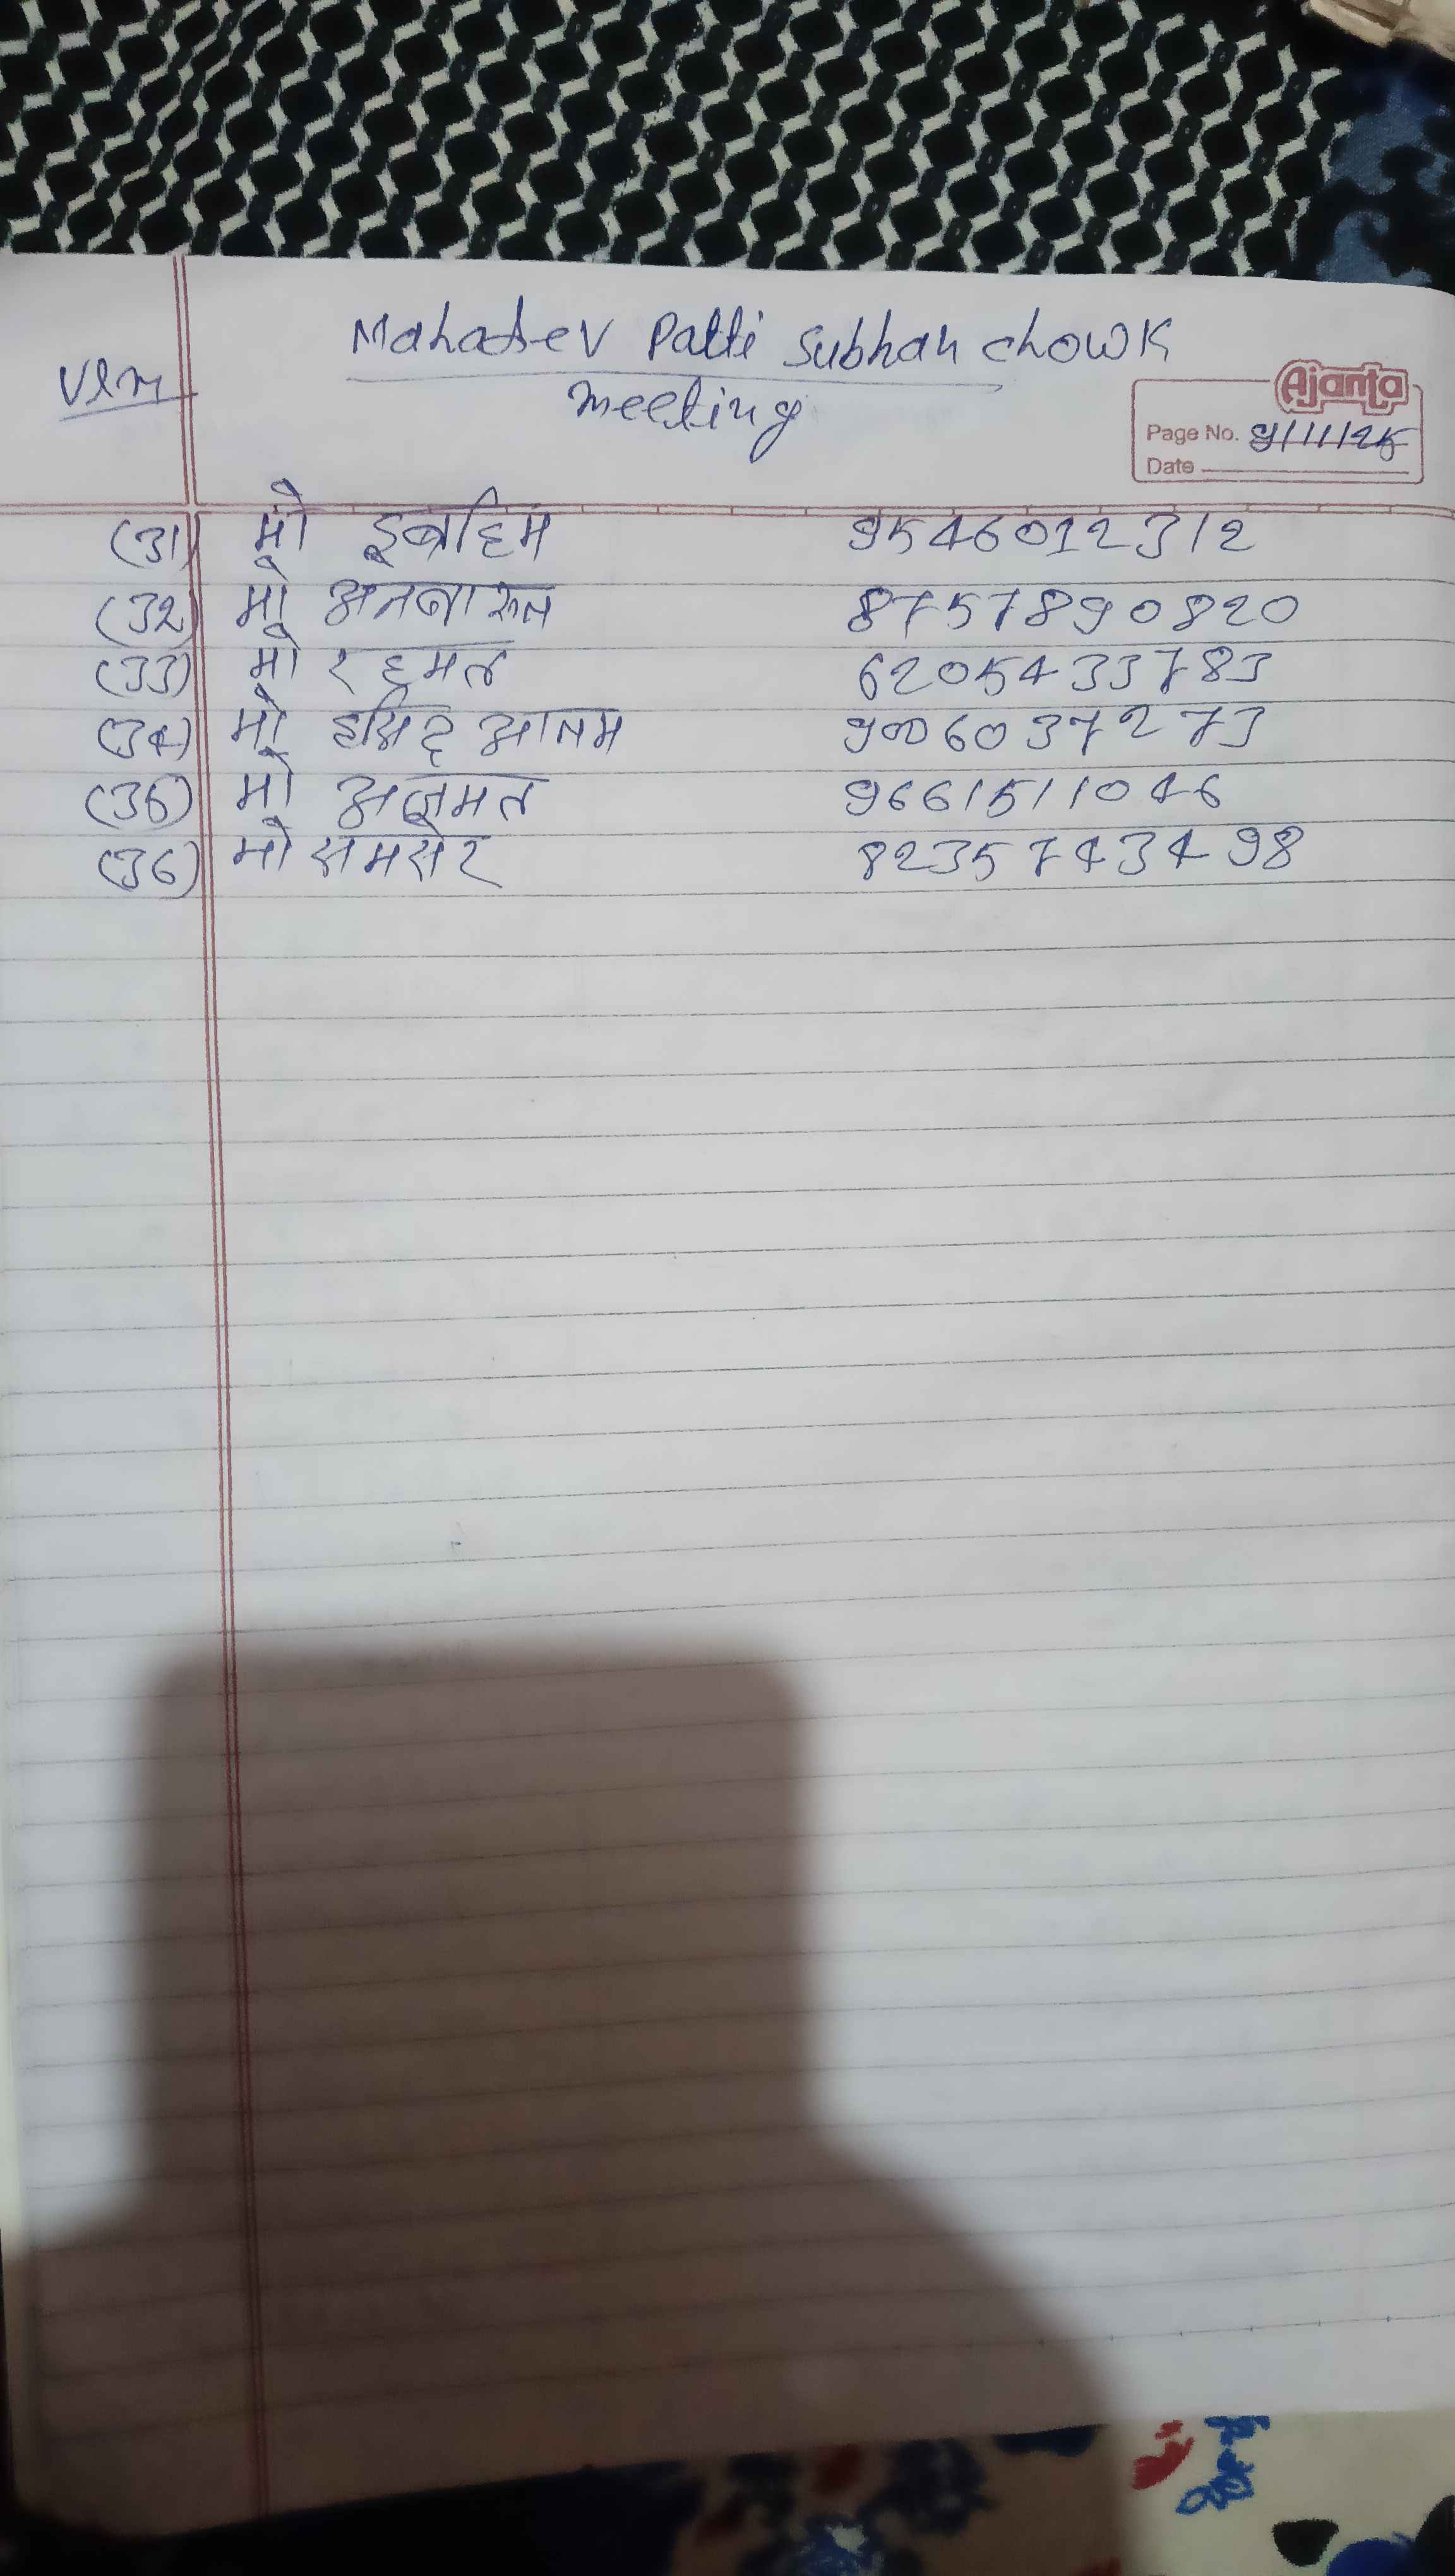 Mahadev Patti Subhan chowk
Vlm
meeting
Ajanta
Page No. 9/11/25
Date
(31) मो इब्राहिम 9546012312
(32) मो 8757890820
(33) मो रहमत 6205433783
(34) मो आलम 9006037273
(35) मो अजमत 9661511046
(36) मो समसेर 8235743498